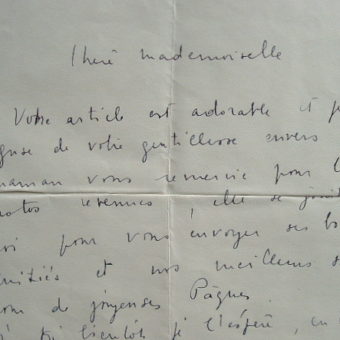 Chère mademoiselle
Votre article est adorable et
de votre gentillesse envers
maman vous remercie pour
elle se
pour vous envoyer ses
et nos meilleurs
de joyeuses Pâques.
bientôt je l'espère, en